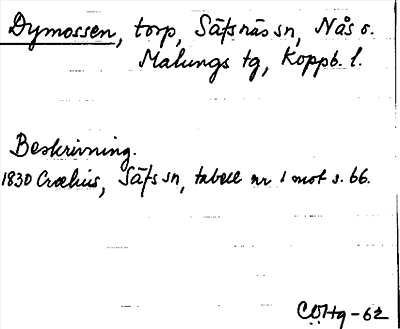 Dymossen, torp, Säfsnäs sn, Nås o.
Malungs tg, Koppb. l.
Beskrivning.
1830 Crælius, Säfs sn, tabell nr 1 mot s. 66.
CWHg-62